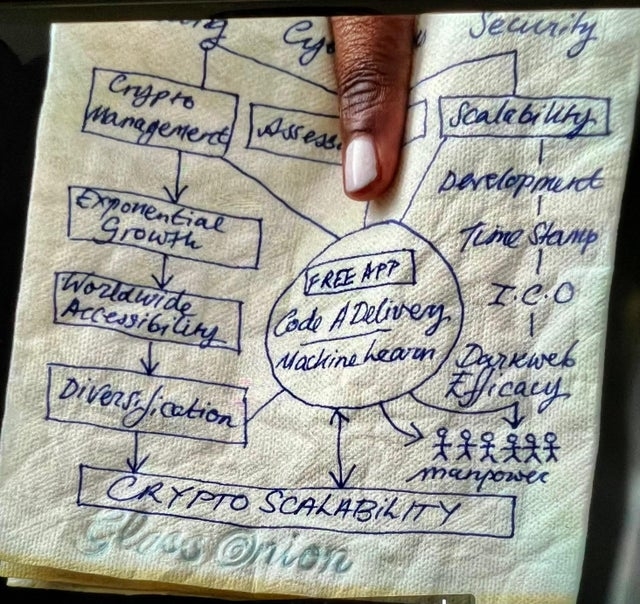 Security
Crypto
Management
Scalability
Development
Exponential
Growth
Time Stamp
Worldwide
Accessibility
I.C.O
FREE APP
Code A Delivery
Machine Learn
Darkweb
Efficacy
Diversification
manpower
CRYPTO SCALABILITY
Glass Onion